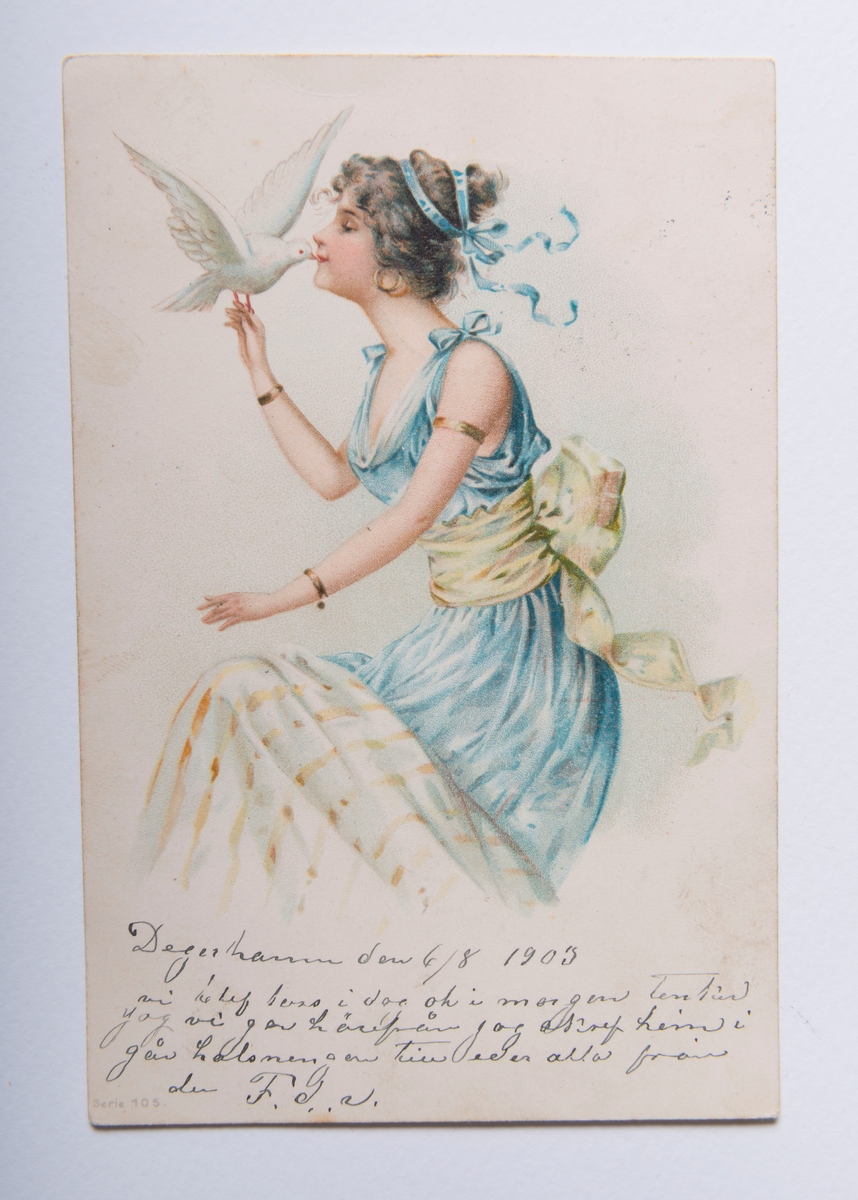 Degerhamn den 6/8 1903
vi blef här i dag ok i morgon tenker
jag vi går härifrån jag skref heim i
går halsnengen till eder alla från
den F. G. s.
Serie 105.